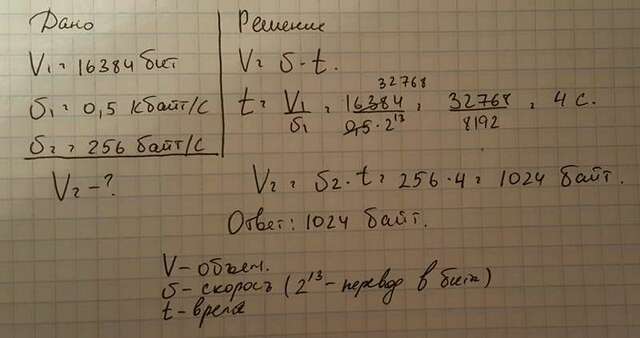 Дано
V₁ = 16384 бит
υ₁ = 0,5 Кбайт/с
υ₂ = 256 байт/с
V₂ - ?
Решение
V = υ · t.
32768
t = V₁/υ₁ = 16384/0,5 · 2¹³ = 32768/8192 = 4 с.
V₂ = υ₂ · t = 256 · 4 = 1024 байт.
Ответ: 1024 байт.
V - объем.
υ - скорость (2¹³ - перевод в биты)
t - время